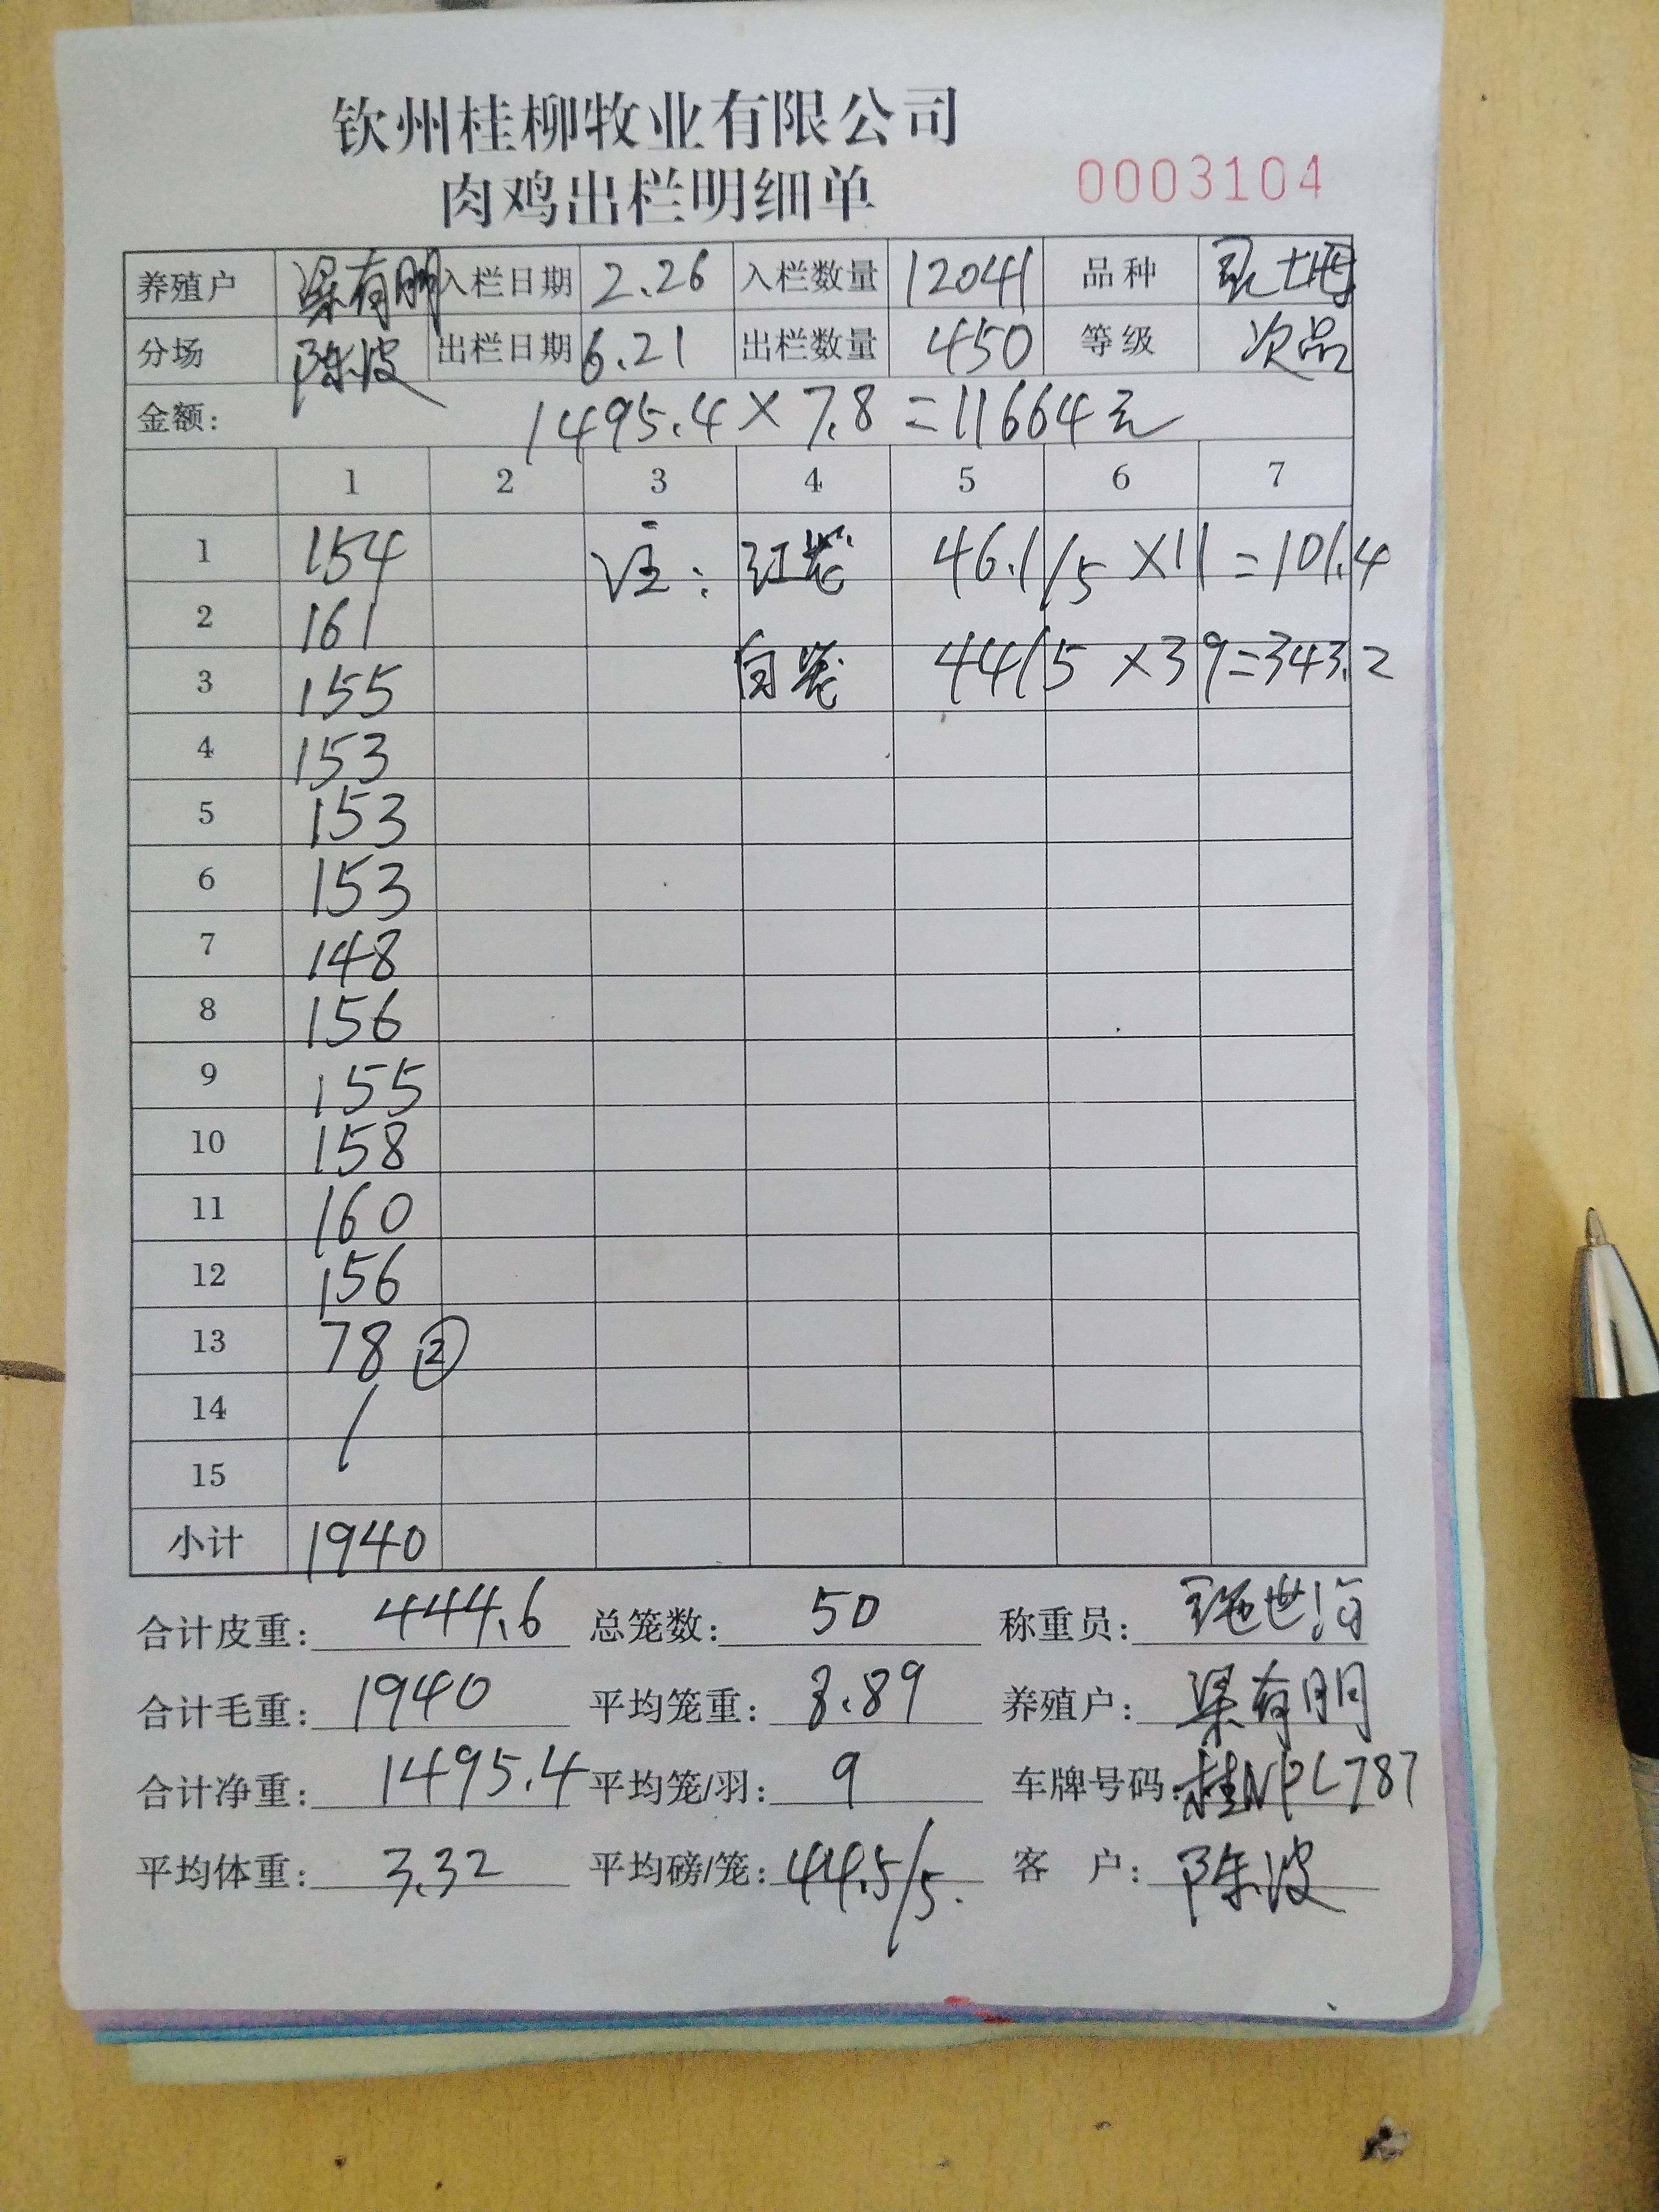 钦州桂柳牧业有限公司
肉鸡出栏明细单
0003104
养殖户 梁有朋 入栏日期 2.26 入栏数量 12041 品种
分场 陈波 出栏日期 6.21 出栏数量 450 等级 次品
金额: 1495.4×7.8=11664元
1 2 3 4 5 6 7
1 154 注: 红笼 46.1/5 ×11=101.4
2 161
3 155 白笼 44/5 ×39=343.2
4 153
5 153
6 153
7 148
8 156
9 155
10 158
11 160
12 156
13 78 ②
14 /
15
小计 1940
合计皮重: 444.6 总笼数: 50 称重员: 世海
合计毛重: 1940 平均笼重: 8.89 养殖户: 梁有朋
合计净重: 1495.4 平均笼/羽: 9 车牌号码: 桂NPL787
平均体重: 3.32 平均磅/笼: 44.5/5. 客 户: 陈波